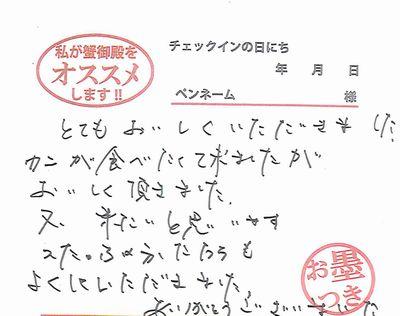 私が蟹御殿を
オススメ
します!!
チェックインの日にち
年 月 日
ペンネーム 様
とてもおいしくいただきました。
カニが食べたくて来ましたが
おいしく頂きました。
又、来たいと思います
スタッフの方たちも
よくしていただきました。
ありがとうございました
お墨
つき